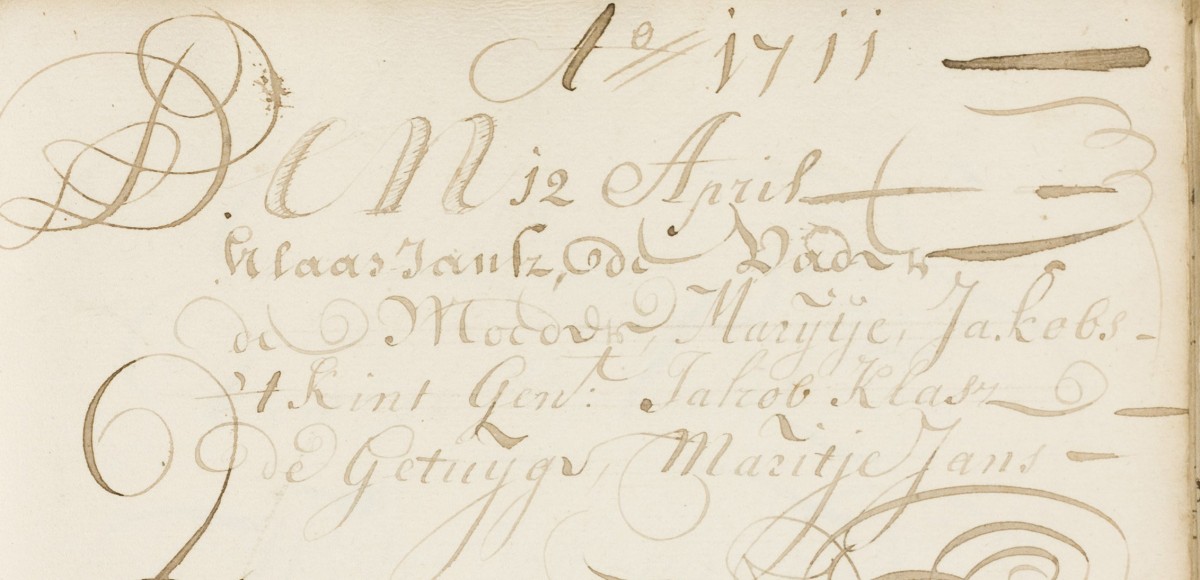 Ao 1711
DEN 12 April
Klaas Jansz, de Vader
de Moeder, Marijtje, Jakobs
't Kint Gent: Jakob Klasz
de Getuyge, Maritje Jans